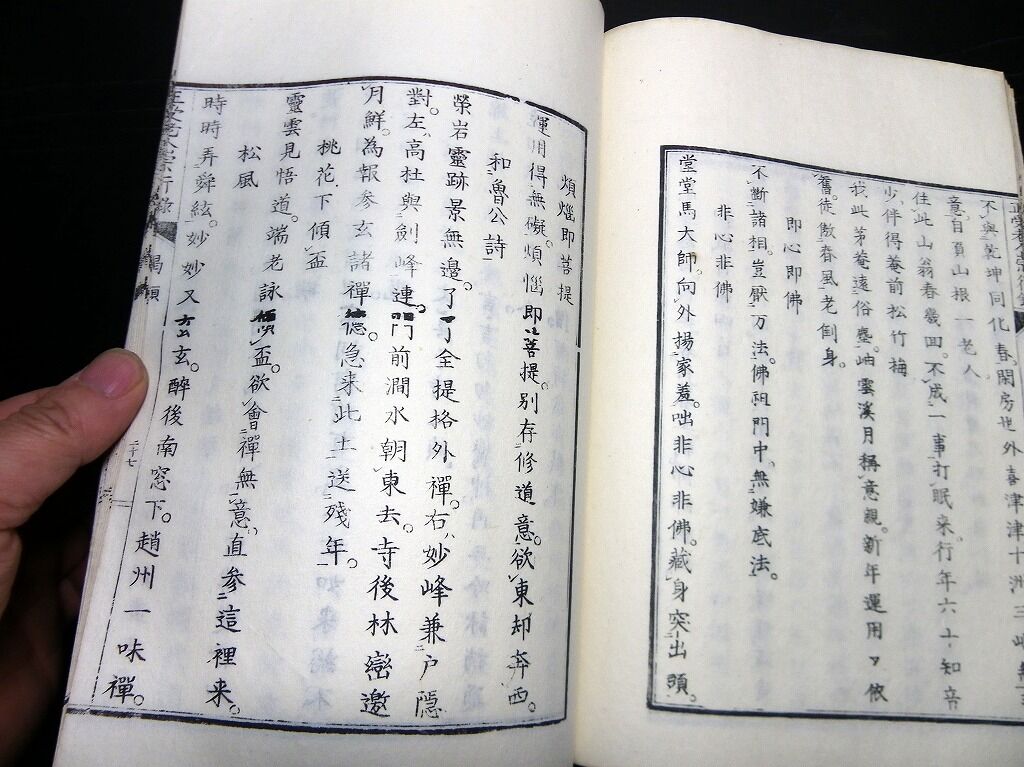 不與乾坤同化春。閑房也外喜津津十洲三
意。自頂山根一老人。
住此山翁春幾回。不成一事打眠来行年六十知音
少。伴得菴前松竹梅
我此茅菴遠俗塵。岫雲溪月稱意親。新年運用依
舊。徒傲春風老倒身。
即心即佛
不斷諸相。豈厭万法。佛祖門中。無嫌底法。
非心非佛
堂堂馬大師。向外揚家羞。咄非心非佛。藏身突出頭。
煩惱即菩提
運用得無礙。煩惱即菩提。別存修道意。欲東却奔西。
和魯公詩
榮岩靈跡景無邊。了了全提格外禪。右妙峰兼戶隱
對。左高杜與劍峰連。門前澗水朝東去。寺後林巒邀
月鮮。為報参玄諸禪德。急来此土送残年。
桃花下傾盃
靈雲見悟道。端老詠傾盃。欲會禪無意。直参這裡来。
松風
時時弄舜絃。妙妙又玄玄。醉後南窓下。趙州一味禪。
偈頌
二十七